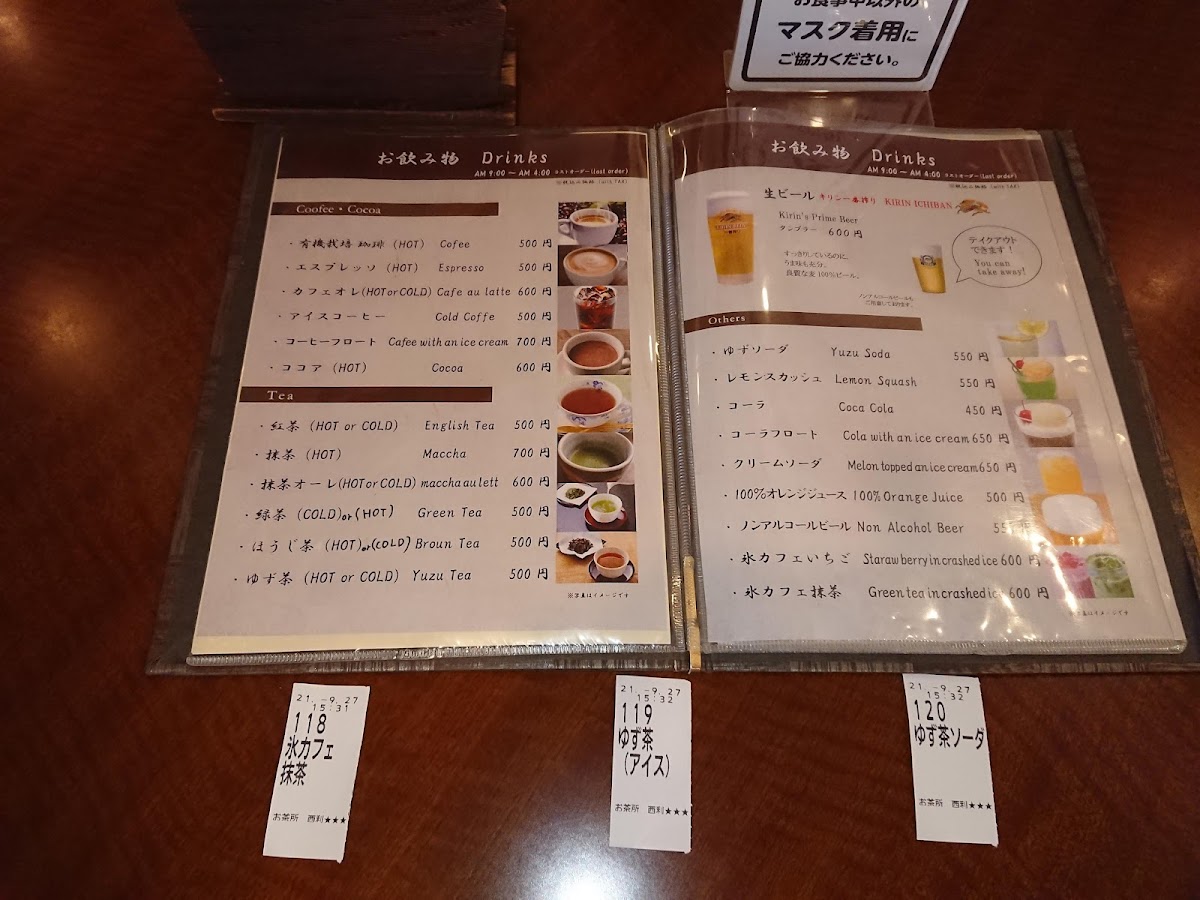 お食事中以外の
マスク着用に
ご協力ください。
お飲み物 Drinks
AM 9:00 ～ AM 4:00 ラストオーダー(last order)
Coofee・Cocoa
・有機栽培珈琲 (HOT) Cofee 500 円
・エスプレッソ (HOT) Espresso 500 円
・カフェオレ(HOTorCOLD) Cafe au latte 600 円
・アイスコーヒー Cold Coffe 500 円
・コーヒーフロート Cafee with an ice cream 700 円
・ココア (HOT) Cocoa 600 円
Tea
・紅茶 (HOT or COLD) English Tea 500 円
・抹茶 (HOT) Maccha 700 円
・抹茶オーレ(HOTorCOLD) maccha au lett 600 円
・緑茶 (COLD)or(HOT) Green Tea 500 円
・はうじ茶 (HOT)or(COLD) Broun Tea 500 円
・ゆず茶 (HOT or COLD) Yuzu Tea 500 円
※写真はイメージです
お飲み物 Drinks
AM 9:00 ～ AM 4:00 ラストオーダー(last order)
生ビール キリン一番搾り KIRIN ICHIBAN
Kirin's Prime Beer
タンブラー 600 円
すっきりしているのに、
うま味も充分。
良質な麦100%ビール。
テイクアウト
できます！
You can
take away!
ノンアルコールビールも
ご用意しております。
Others
・ゆずソーダ Yuzu Soda 550 円
・レモンスカッシュ Lemon Squash 550 円
・コーラ Coca Cola 450 円
・コーラフロート Cola with an ice cream 650 円
・クリームソーダ Melon topped an ice cream 650 円
・100%オレンジジュース 100% Orange Juice 500 円
・ノンアルコールビール Non Alcohol Beer 円
・氷カフェいちご Staraw berry in crashed ice 600 円
・氷カフェ抹茶 Green tea in crashed ice 600 円
※写真はイメージです
21. -9. 27
15:31
118
氷カフェ
抹茶
お茶所 西利★★★
21. -9. 27
15:32
119
ゆず茶
(アイス)
お茶所 西利★★★
21. -9. 27
15:32
120
ゆず茶ソーダ
お茶所 西利★★★